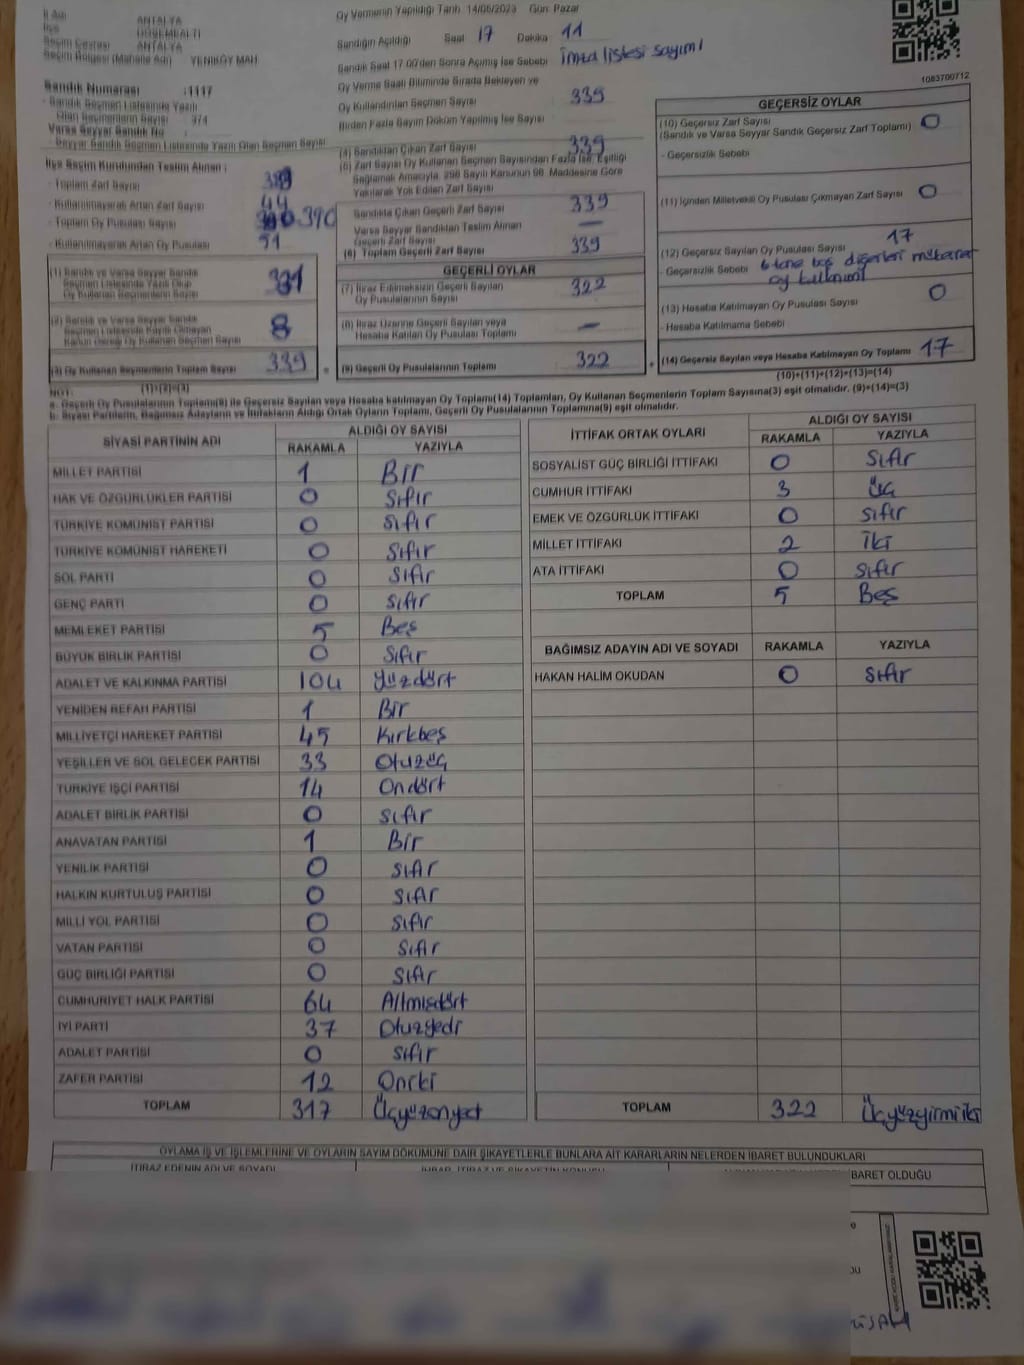 İli Adı ANTALYA
İlçe DÖŞEMEALTI
Seçim Çevresi ANTALYA
Seçim Bölgesi (Mahalle Adı) YENİKÖY MAH
Sandık Numarası :1117
- Sandık Seçmen Listesinde Yazılı
Olan Seçmenlerin Sayısı 374
Varsa Seyyar Sandık No
- Seyyar Sandık Seçmen Listesinde Yazılı Olan Seçmen Sayısı
İlçe Seçim Kurulundan Teslim Alınan :
- Toplam Zarf Sayısı
- Kullanılmayarak Artan Zarf Sayısı
- Toplam Oy Pusulası Sayısı 390
- Kullanılmayarak Artan Oy Pusulası 51
(1) Sandık ve Varsa Seyyar Sandık
Seçmen Listesinde Yazılı Olup
Oy Kullanan Seçmenlerin Sayısı 331
(2) Sandık ve Varsa Seyyar Sandık
Seçmen Listesinde Kayıtlı Olmayan
Kanun Gereği Oy Kullanan Seçmen Sayısı 8
(3) Oy Kullanan Seçmenlerin Toplam Sayısı 339
(1)+(2)=(3)
Oy Vermenin Yapıldığı Tarih 14/05/2023 Gün: Pazar
Sandığın Açıldığı Saat 17 Dakika 11
Sandık Saat 17.00'den Sonra Açılmış İse Sebebi imza listesi sayımı
Oy Verme Saati Bitiminde Sırada Bekleyen ve
Oy Kullandırılan Seçmen Sayısı 339
Birden Fazla Sayım Döküm Yapılmış İse Sayısı
(4) Sandıktan Çıkan Zarf Sayısı 339
(5) Zarf Sayısı Oy Kullanan Seçmen Sayısından Fazla İse, Eşitliği
Sağlamak Amacıyla, 298 Sayılı Kanunun 98. Maddesine Göre
Yakılarak Yok Edilen Zarf Sayısı
Sandıkta Çıkan Geçerli Zarf Sayısı 339
Varsa Seyyar Sandıktan Teslim Alınan
Geçerli Zarf Sayısı —
(6) Toplam Geçerli Zarf Sayısı 339
GEÇERLİ OYLAR
(7) İtiraz Edilmeksizin Geçerli Sayılan
Oy Pusulalarının Sayısı 322
(8) İtiraz Üzerine Geçerli Sayılan veya
Hesaba Katılan Oy Pusulası Toplamı —
(9) Geçerli Oy Pusulalarının Toplamı 322
1083700712
GEÇERSİZ OYLAR
(10) Geçersiz Zarf Sayısı 0
(Sandık ve Varsa Seyyar Sandık Geçersiz Zarf Toplamı)
- Geçersizlik Sebebi
(11) İçinden Milletvekili Oy Pusulası Çıkmayan Zarf Sayısı 0
(12) Geçersiz Sayılan Oy Pusulası Sayısı 17
- Geçersizlik Sebebi 6 tane boş diğerleri mükerrer
oy kullanımı
(13) Hesaba Katılmayan Oy Pusulası Sayısı 0
- Hesaba Katılmama Sebebi
(14) Geçersiz Sayılan veya Hesaba Katılmayan Oy Toplamı 17
(10)+(11)+(12)+(13)=(14)
NOT:
a. Geçerli Oy Pusulalarının Toplamı(9) ile Geçersiz Sayılan veya Hesaba katılmayan Oy Toplamı(14) Toplamları, Oy Kullanan Seçmenlerin Toplam Sayısına(3) eşit olmalıdır. (9)+(14)=(3)
b. Siyasi Partilerin, Bağımsız Adayların ve İttifakların Aldığı Ortak Oyların Toplamı, Geçerli Oy Pusulalarının Toplamına(9) eşit olmalıdır.
SİYASİ PARTİNİN ADI ALDIĞI OY SAYISI
RAKAMLA YAZIYLA
MİLLET PARTİSİ 1 Bir
HAK VE ÖZGÜRLÜKLER PARTİSİ 0 Sıfır
TÜRKİYE KOMÜNİST PARTİSİ 0 Sıfır
TÜRKİYE KOMÜNİST HAREKETİ 0 Sıfır
SOL PARTİ 0 Sıfır
GENÇ PARTİ 0 Sıfır
MEMLEKET PARTİSİ 5 Beş
BÜYÜK BİRLİK PARTİSİ 0 Sıfır
ADALET VE KALKINMA PARTİSİ 104 Yüzdört
YENİDEN REFAH PARTİSİ 1 Bir
MİLLİYETÇİ HAREKET PARTİSİ 45 Kırkbeş
YEŞİLLER VE SOL GELECEK PARTİSİ 33 Otuzüç
TÜRKİYE İŞÇİ PARTİSİ 14 Ondört
ADALET BİRLİK PARTİSİ 0 Sıfır
ANAVATAN PARTİSİ 1 Bir
YENİLİK PARTİSİ 0 Sıfır
HALKIN KURTULUŞ PARTİSİ 0 Sıfır
MİLLİ YOL PARTİSİ 0 Sıfır
VATAN PARTİSİ 0 Sıfır
GÜÇ BİRLİĞİ PARTİSİ 0 Sıfır
CUMHURİYET HALK PARTİSİ 64 Altmışdört
İYİ PARTİ 37 Otuzyedi
ADALET PARTİSİ 0 Sıfır
ZAFER PARTİSİ 12 Oniki
TOPLAM 317 Üçyüzonyedi
İTTİFAK ORTAK OYLARI ALDIĞI OY SAYISI
RAKAMLA YAZIYLA
SOSYALİST GÜÇ BİRLİĞİ İTTİFAKI 0 Sıfır
CUMHUR İTTİFAKI 3 Üç
EMEK VE ÖZGÜRLÜK İTTİFAKI 0 Sıfır
MİLLET İTTİFAKI 2 İki
ATA İTTİFAKI 0 Sıfır
TOPLAM 5 Beş
BAĞIMSIZ ADAYIN ADI VE SOYADI RAKAMLA YAZIYLA
HAKAN HALİM OKUDAN 0 Sıfır
TOPLAM 322 Üçyüzyirmiiki
OYLAMA İŞ VE İŞLEMLERİNE VE OYLARIN SAYIM DÖKÜMÜNE DAİR ŞİKAYETLERLE BUNLARA AİT KARARLARIN NELERDEN İBARET BULUNDUKLARI
İTİRAZ EDENİN ADI VE SOYADI İHBAR, İTİRAZ VE ŞİKAYETİN KONUSU İBARET OLDUĞU